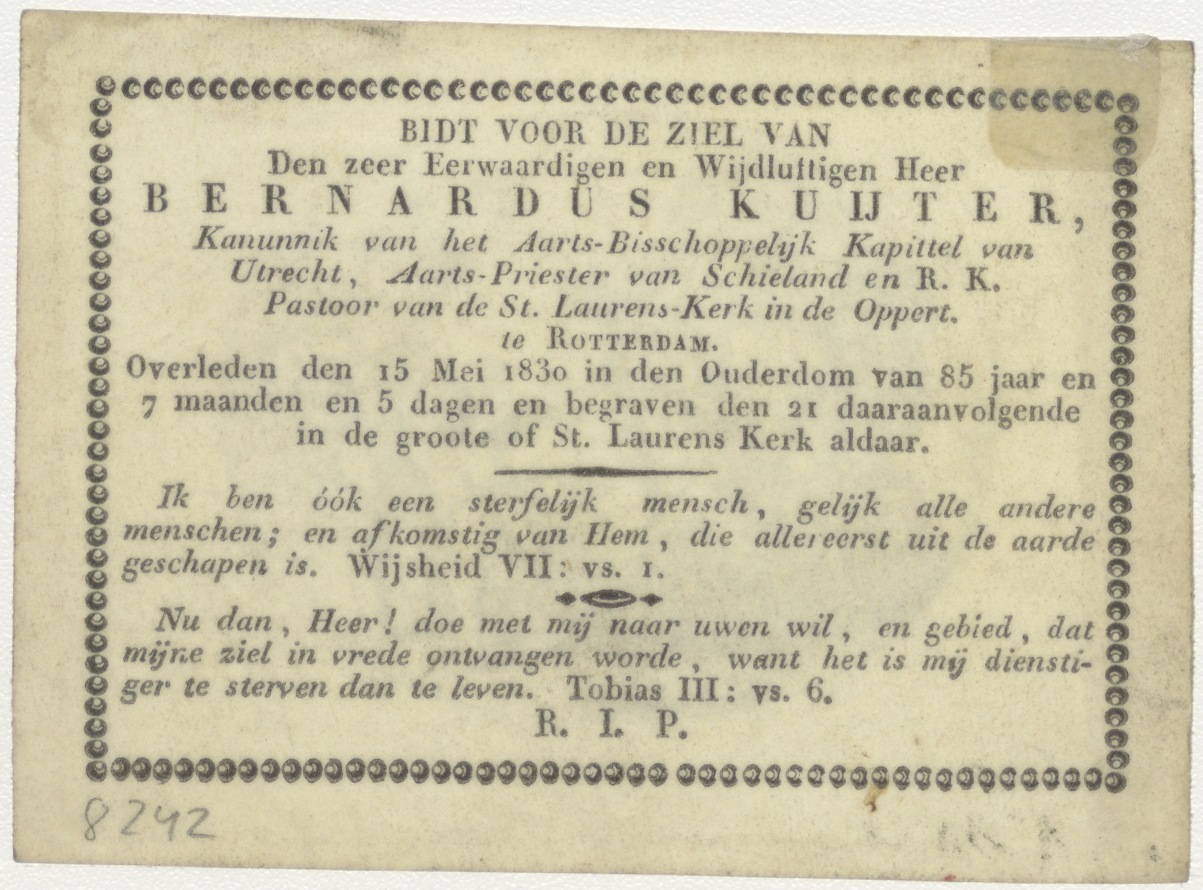 BIDT VOOR DE ZIEL VAN
Den zeer Eerwaardigen en Wijdluftigen Heer
BERNARDUS KUIJTER,
Kanunnik van het Aarts-Bisschoppelijk Kapittel van
Utrecht, Aarts-Priester van Schieland en R. K.
Pastoor van de St. Laurens-Kerk in de Oppert.
te ROTTERDAM.
Overleden den 15 Mei 1830 in den Ouderdom van 85 jaar en
7 maanden en 5 dagen en begraven den 21 daaraanvolgende
in de groote of St. Laurens Kerk aldaar.
Ik ben óók een sterfelijk mensch, gelijk alle andere
menschen; en afkomstig van Hem, die allereerst uit de aarde
geschapen is. Wijsheid VII: vs. 1.
Nu dan, Heer! doe met mij naar uwen wil, en gebied, dat
mijne ziel in vrede ontvangen worde, want het is mij diensti-
ger te sterven dan te leven. Tobias III: vs. 6.
R. I. P.
8242